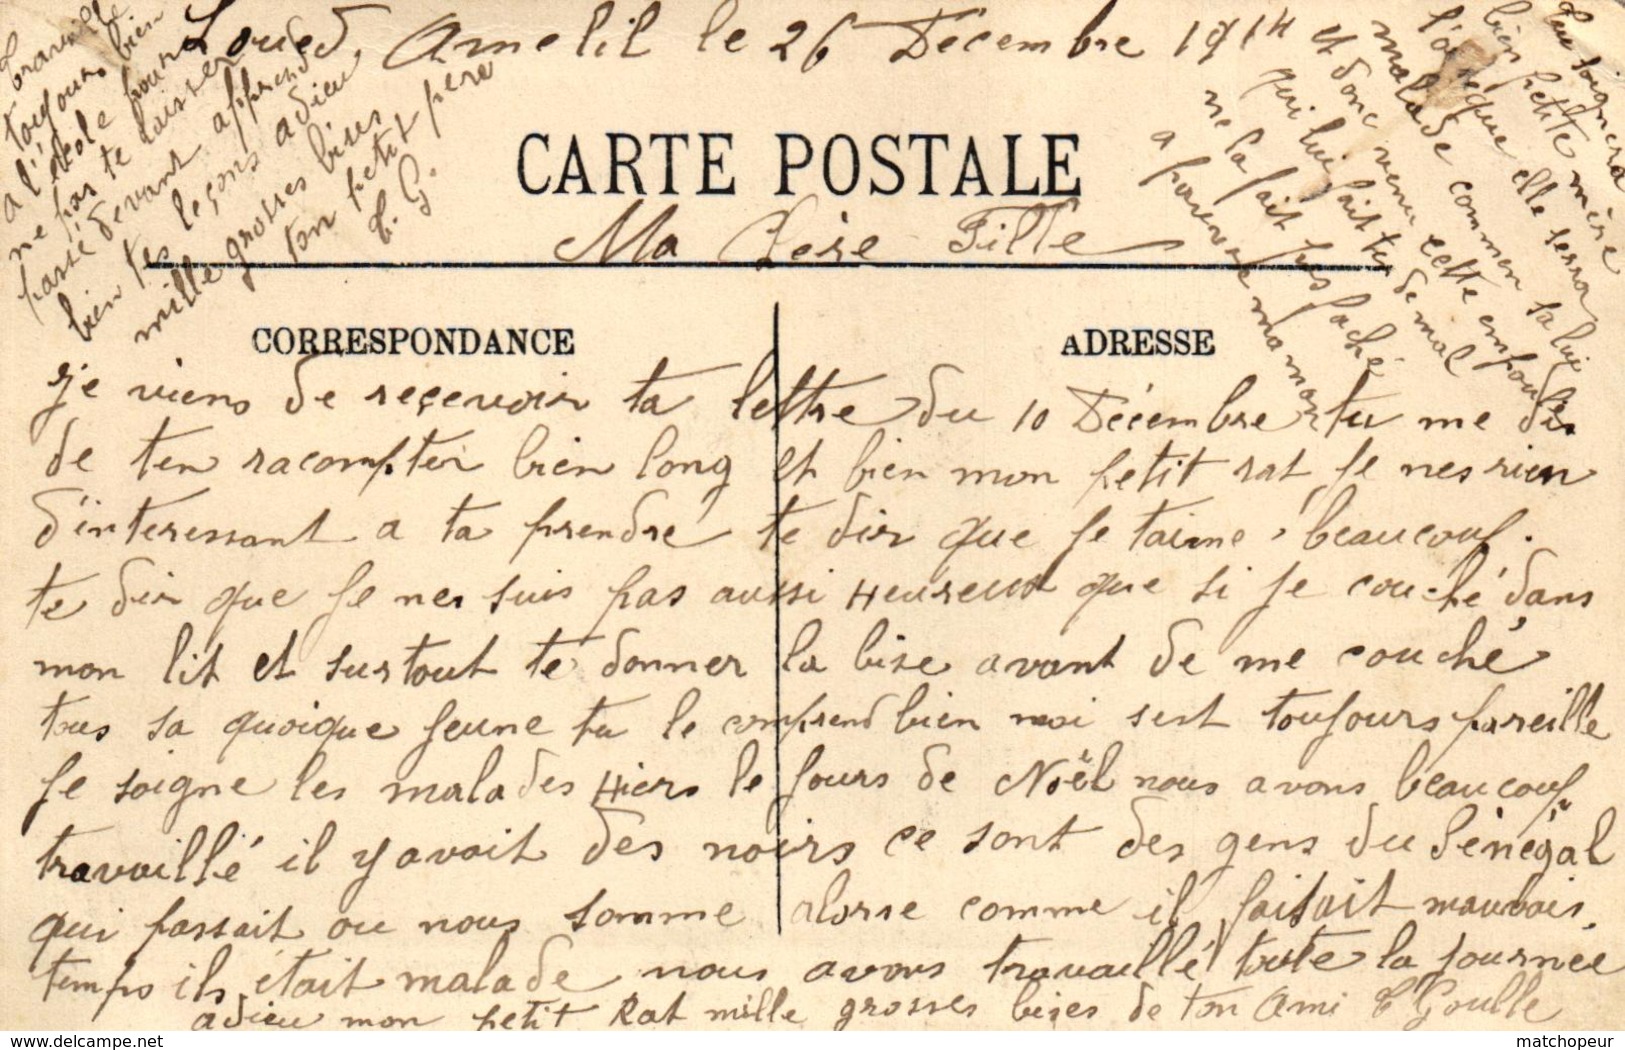 Loued Amelil le 26 Décembre 1914
CARTE POSTALE
Ma Chère Fille
CORRESPONDANCE
ADRESSE
Je viens de reçevoir ta lettre du 10 Décembre tu me dis
de ten racompter bien long et bien mon petit rat je nes rien
d'interessant a ta prendre te dir que je taime beaucoup.
te dir que je nes suis pas aussi Heureux que si je couché dans
mon lit et surtout te donner la bise avant de me couché
tous sa quoique jeune tu le comprend bien moi sest toujours pareille
je soigne les malades Hiers le jours de Noël nous avons beaucoup
travaillé il y avait des noirs ce sont des gens du Sénégal
qui passait ou nous somme alorse comme il faisait mauvais
temps ils était malade nous avons travaillé toute la journée
adieu mon petit Rat mille grosses bises de ton Ami E Goulle
travaille
toujours bien
a l'école pour
ne pas te laisser
passé devant apprend
bien tes leçons adieu
mille grosses bises
ton petit pere
E. G.
a pauvre maman
ne la fait pas faché
qui lui fait tes de mal
et donc venu cette empoule
malade commen sa lui
que elle serra
bien petite mère
lui soignera
matchopeur